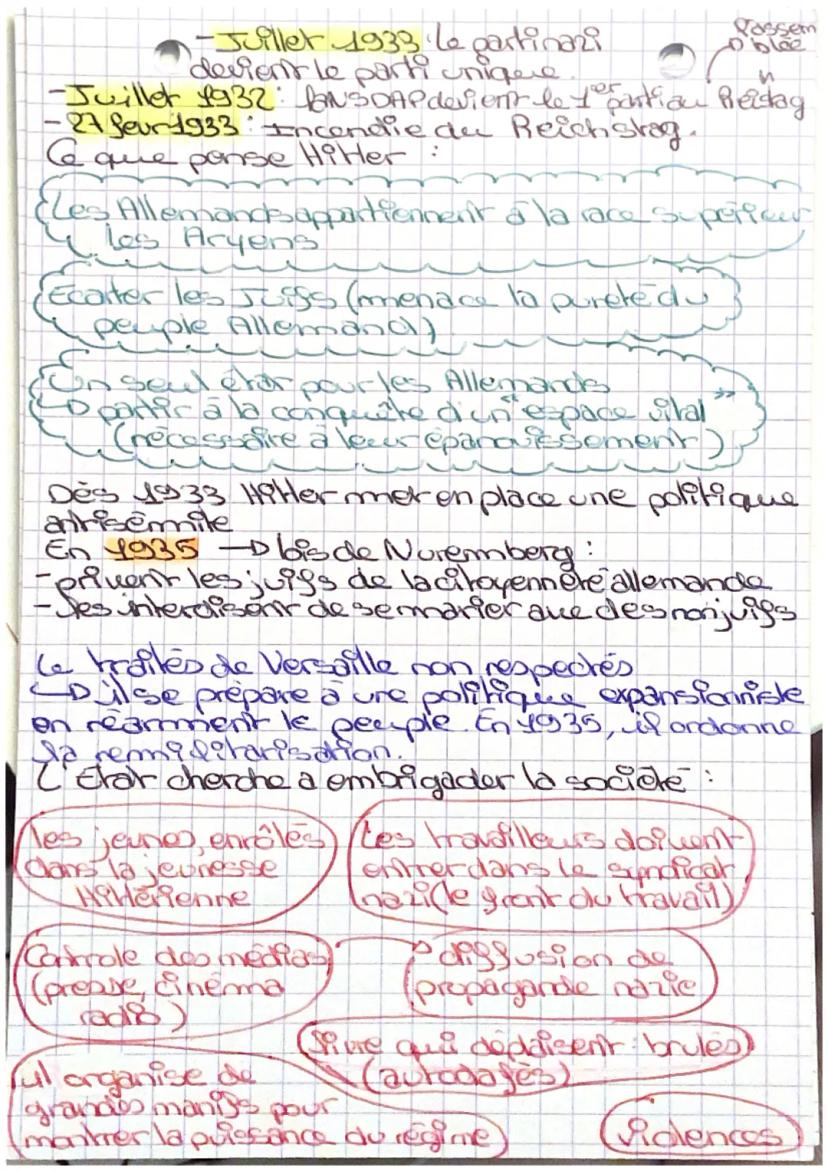 - Juillet 1933 : Le parti nazi
devient le parti unique.
l'assem
blée
- Juillet 1932 : la NSDAP devient le 1er parti au Reistag
- 27 fevr 1933 : Incendie du Reichstag.
Ce que pense Hitler :
Les Allemands appartiennent à la race supérieur
les Aryens
Ecarter les Juifs (menace la pureté du
peuple Allemand)
Un seul état pour les Allemands
↳ partir à la conquête d'un "espace vital"
(nécessaire à leur épanouissement)
Dès 1933 Hitler met en place une politique
antisémite
En 1935 → lois de Nuremberg :
- privent les juifs de la citoyenneté allemande
- les interdisent de se marier avec des non juifs
Le traités de Versaille non respectés
↳ il se prépare à une politique expansionniste
en réarment le peuple. En 1935, il ordonne
la remilitarisation.
L'Etat cherche a embrigader la société :
les jeunes, enrôlés
dans la jeunesse
Hitlérienne
Les travailleurs doivent
entrer dans le syndicat
nazi (le front du travail)
Controle des médias
(presse, cinéma
radio)
→ diffusion de
propagande nazie
livre qui déplaisent : brulés
(autodafés)
il organise de
grandes manifs pour
montrer la puissance du régime
violences